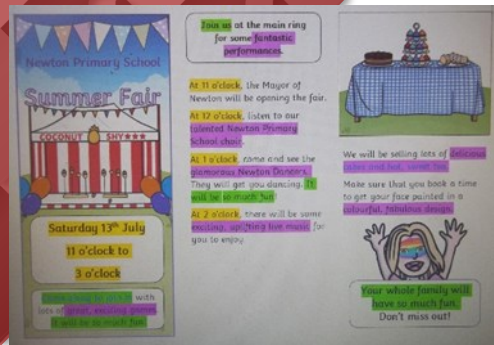 Newton Primary School
Summer Fair
COCONUT SHY★★★
Saturday 13th July
11 o'clock to
3 o'clock
Come along to join in with
lots of great, exciting games.
It will be so much fun.
Join us at the main ring
for some fantastic
performances.
At 11 o'clock, the Mayor of
Newton will be opening the fair.
At 12 o'clock, listen to our
talented Newton Primary
School choir.
At 1 o'clock, come and see the
glamorous Newton Dancers.
They will get you dancing. It
will be so much fun!
At 2 o'clock, there will be some
exciting, uplifting live music for
you to enjoy.
We will be selling lots of delicious
cakes and hot, sweet tea.
Make sure that you book a time
to get your face painted in a
colourful, fabulous design.
Your whole family will
have so much fun.
Don't miss out!